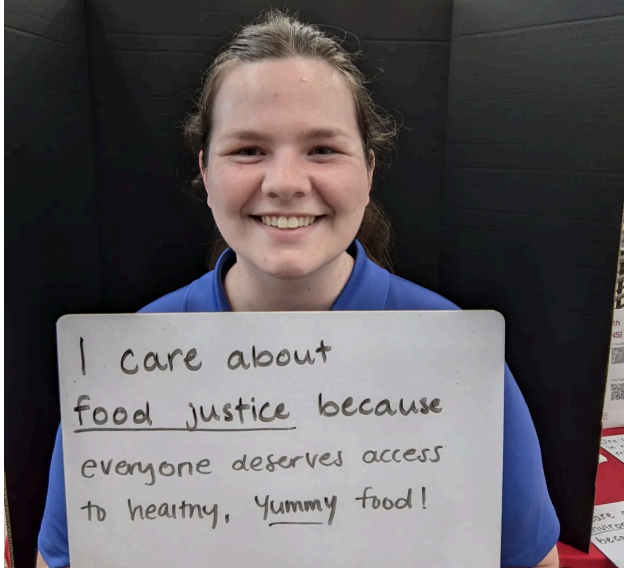 I care about
food justice because
everyone deserves access
to healthy, yummy food!